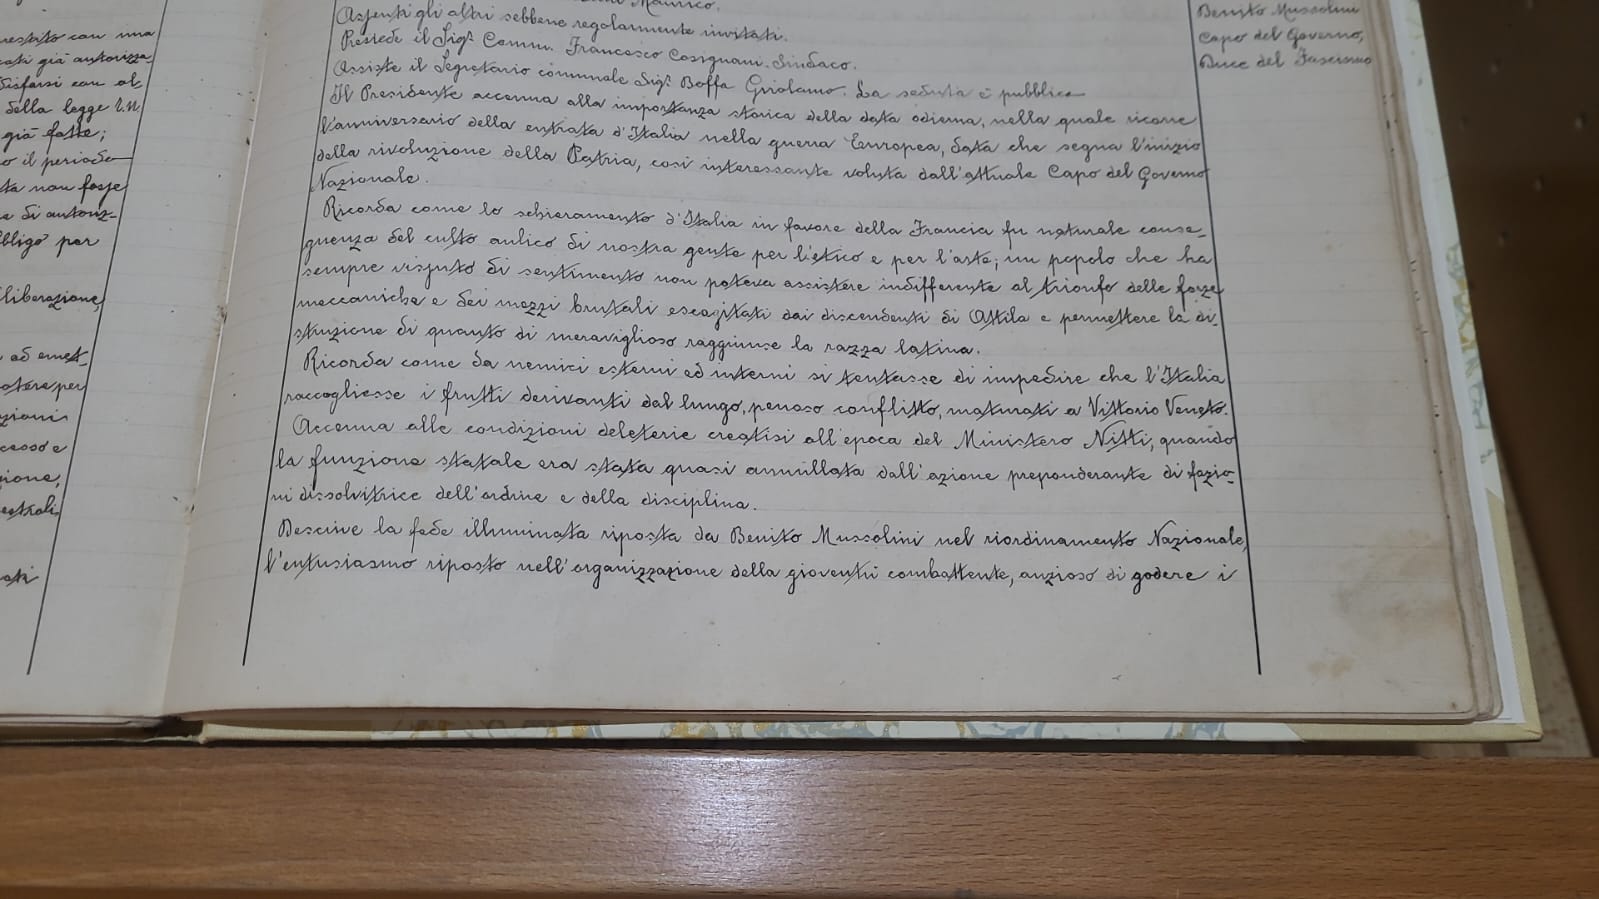 restito con una
cati già autorizza
disfarsi con al-
della legge
già fatte;
o il periodo
ta non fosse
e di autoriz-
bbligo per
liberazione,
ad emet-
otere per
zioni
cesso e
zione,
estrali
ati
Maurico.
Assenti gli altri sebbene regolarmente invitati.
Presiede il Sigr Comm. Francesco Cosignani. Sindaco.
Assiste il Segretario comunale Sigr Boffa Griolamo. La seduta è pubblica
Il Presidente accenna alla importanza storica della data odierna, nella quale ricorre
l'anniversario della entrata d'Italia nella guerra Europea, data che segna l'inizio
della rivoluzione della Patria, così interessante voluta dall'attuale Capo del Governo
Nazionale.
Ricorda come lo schieramento d'Italia in favore della Francia fu naturale conse-
guenza del culto antico di nostra gente per l'etico e per l'arte; un popolo che ha
sempre vissuto di sentimento non poteva assistere indifferente al trionfo delle forze
meccaniche e dei mezzi brutali escogitati dai discendenti di Attila e permettere la di-
struzione di quanto di meraviglioso raggiunse la razza latina.
Ricorda come da nemici esterni ed interni si tentasse di impedire che l'Italia
raccogliesse i frutti derivanti dal lungo, penoso conflitto, maturati a Vittorio Veneto.
Accenna alle condizioni deleterie creatisi all'epoca del Ministero Nitti, quando
la funzione statale era stata quasi annullata dall'azione preponderante di fazio-
ni dissolvitrice dell'ordine e della disciplina.
Descrive la fede illuminata riposta da Benito Mussolini nel riordinamento Nazionale,
l'entusiasmo riposto nell'organizzazione della gioventù combattente, anzioso di godere i
Benito Mussolini
Capo del Governo,
Duce del Fascismo